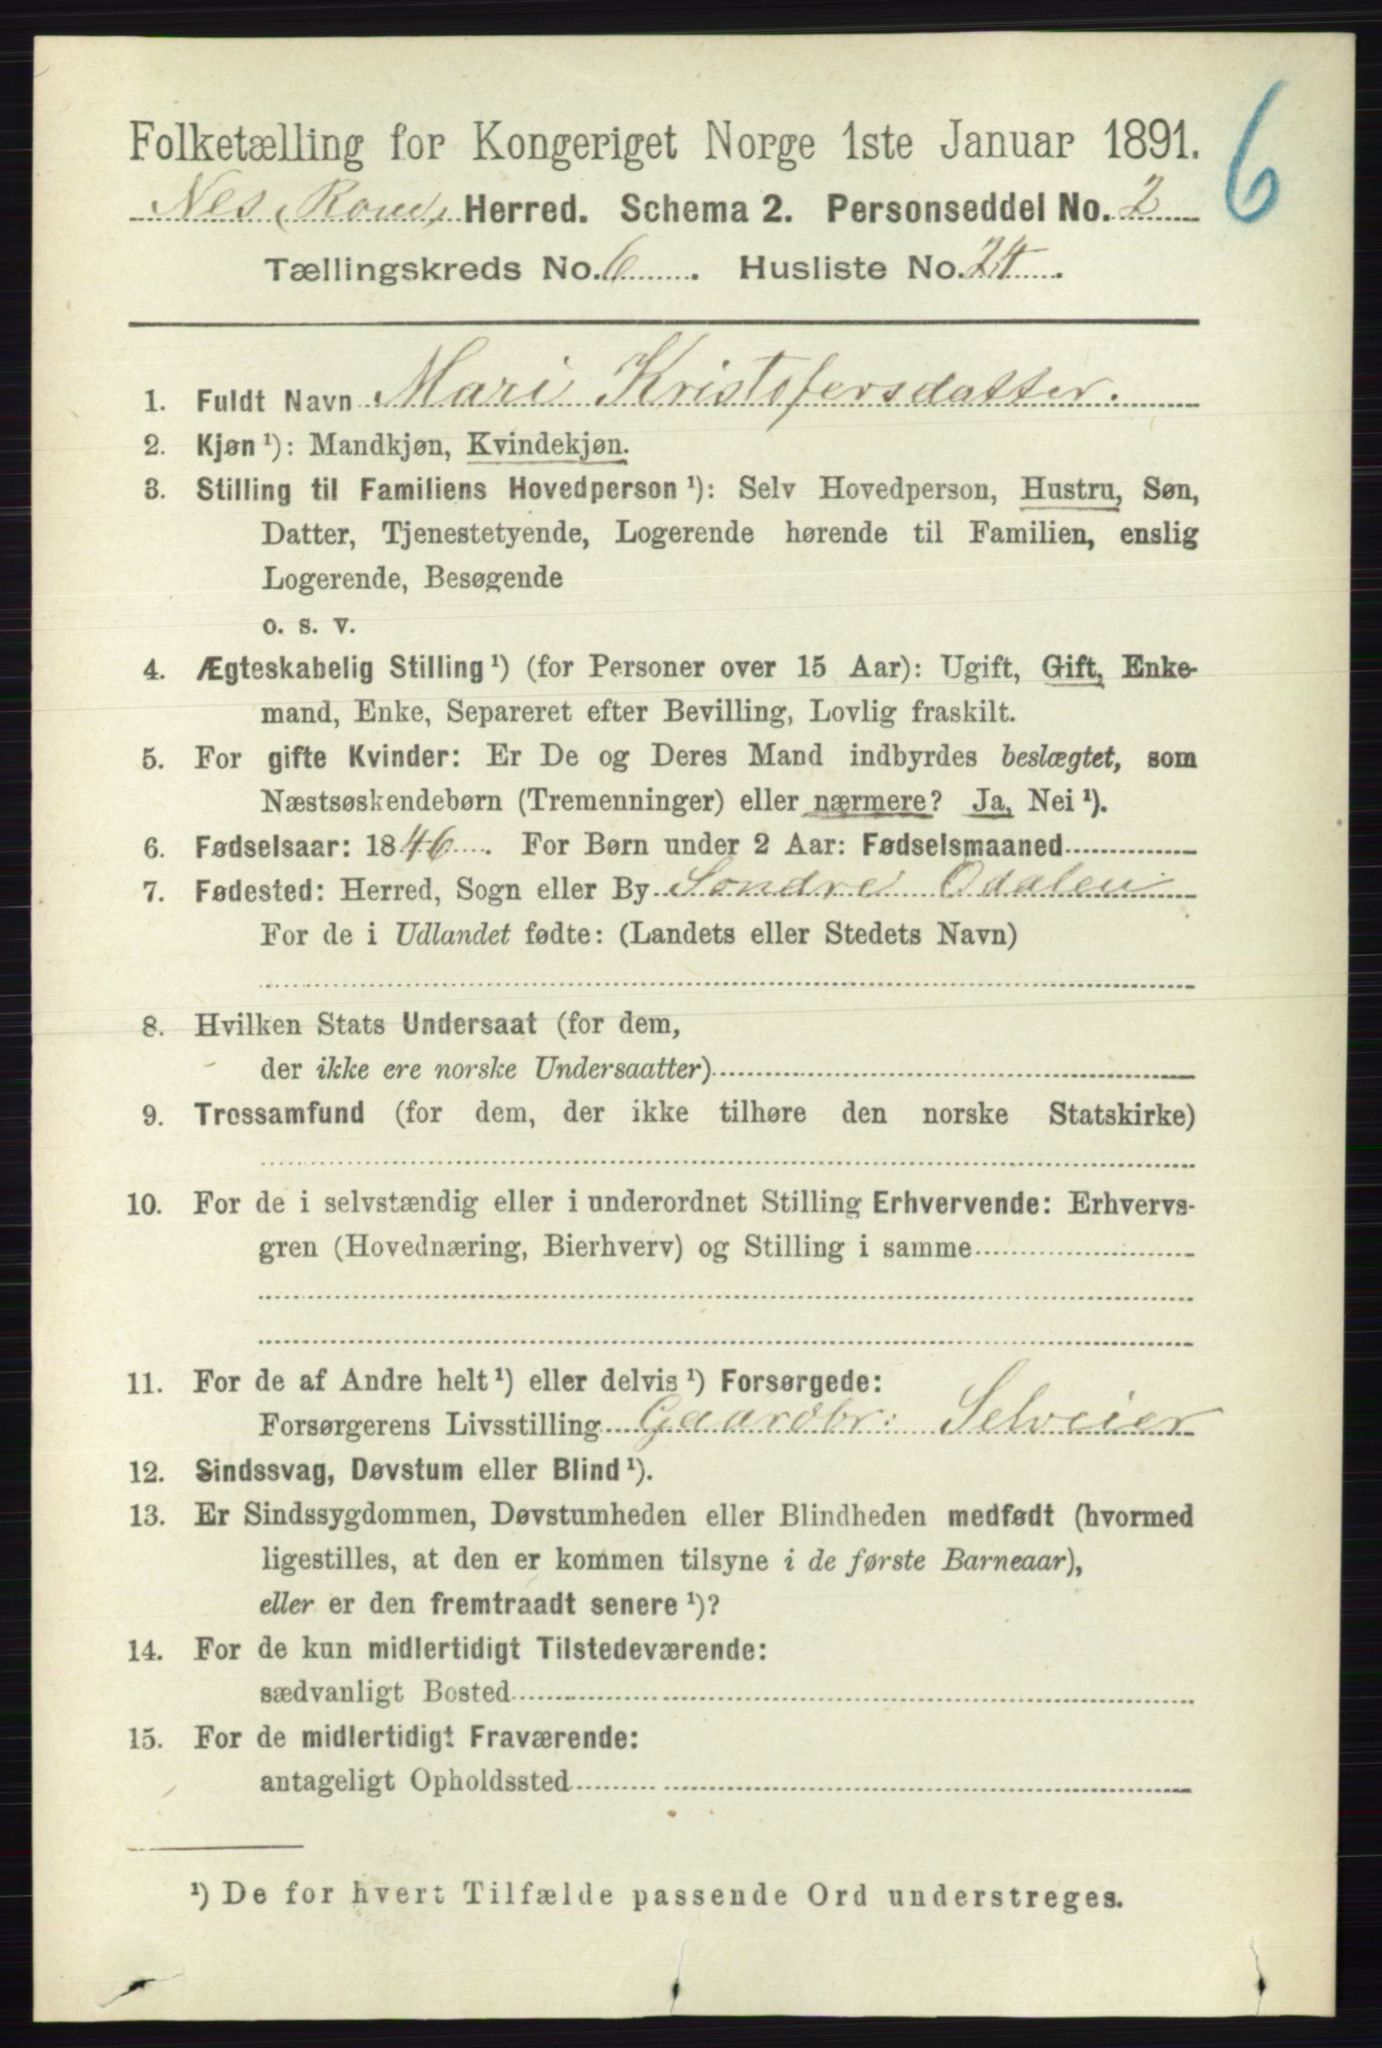 6
Folketælling for Kongeriget Norge 1ste Januar 1891.
Nes, Rom, Herred. Schema 2. Personseddel No. 2
Tællingskreds No. 6. Husliste No. 24.
1. Fuldt Navn Mari Kristofersdatter.
2. Kjøn ¹): Mandkjøn, Kvindekjøn.
3. Stilling til Familiens Hovedperson ¹): Selv Hovedperson, Hustru, Søn,
Datter, Tjenestetyende, Logerende hørende til Familien, enslig
Logerende, Besøgende
o. s. v.
4. Ægteskabelig Stilling ¹) (for Personer over 15 Aar): Ugift, Gift, Enke-
mand, Enke, Separeret efter Bevilling, Lovlig fraskilt.
5. For gifte Kvinder: Er De og Deres Mand indbyrdes beslægtet, som
Næstsøskendebørn (Tremenninger) eller nærmere? Ja, Nei ¹).
6. Fødselsaar: 1846. For Børn under 2 Aar: Fødselsmaaned
7. Fødested: Herred, Sogn eller By Søndre Odalen
For de i Udlandet fødte: (Landets eller Stedets Navn)
8. Hvilken Stats Undersaat (for dem,
der ikke ere norske Undersaatter)
9. Trossamfund (for dem, der ikke tilhøre den norske Statskirke)
10. For de i selvstændig eller i underordnet Stilling Erhvervende: Erhvervs-
gren (Hovednæring, Bierhverv) og Stilling i samme
11. For de af Andre helt ¹) eller delvis ¹) Forsørgede:
Forsørgerens Livsstilling Gaardbr: Selveier
12. Sindssvag, Døvstum eller Blind ¹).
13. Er Sindssygdommen, Døvstumheden eller Blindheden medfødt (hvormed
ligestilles, at den er kommen tilsyne i de første Barneaar),
eller er den fremtraadt senere ¹)?
14. For de kun midlertidigt Tilstedeværende:
sædvanligt Bosted
15. For de midlertidigt Fraværende:
antageligt Opholdssted
¹) De for hvert Tilfælde passende Ord understreges.